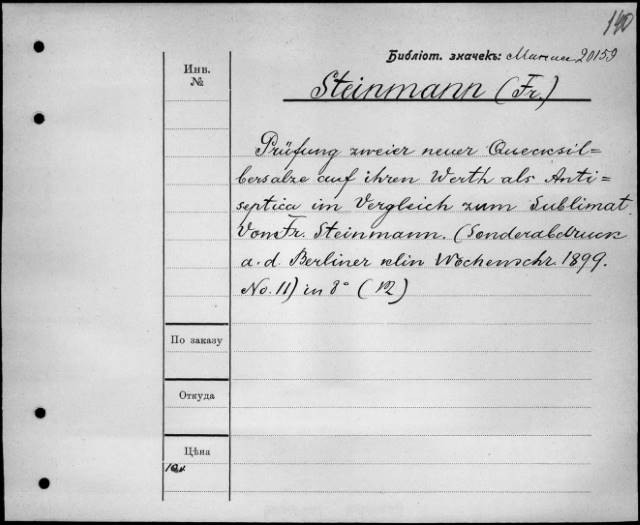 140
Библіот. значекъ: 20159
Инв. №
Steinmann (Fr.)
Prüfung zweier neuer Quecksil=
bersalze auf ihren Werth als Anti=
septica im Vergleich zum Sublimat.
Von Fr. Steinmann. (Sonderabdruck
a. d. Berliner klin Wochenschr. 1899.
No. 11) in 8° (12)
По заказу
Откуда
Цѣна